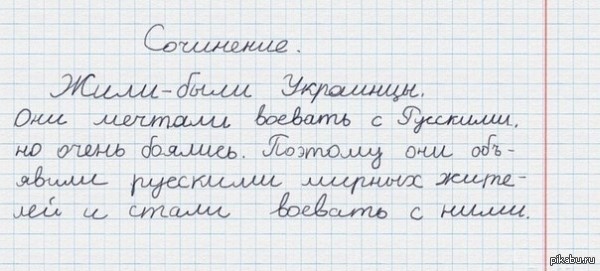 Сочинение.
Жили-были Украинцы.
Они мечтали воевать с Русскими,
но очень боялись. Поэтому они объ-
явили русскими мирных жите-
лей и стали воевать с ними.
pikabu.ru